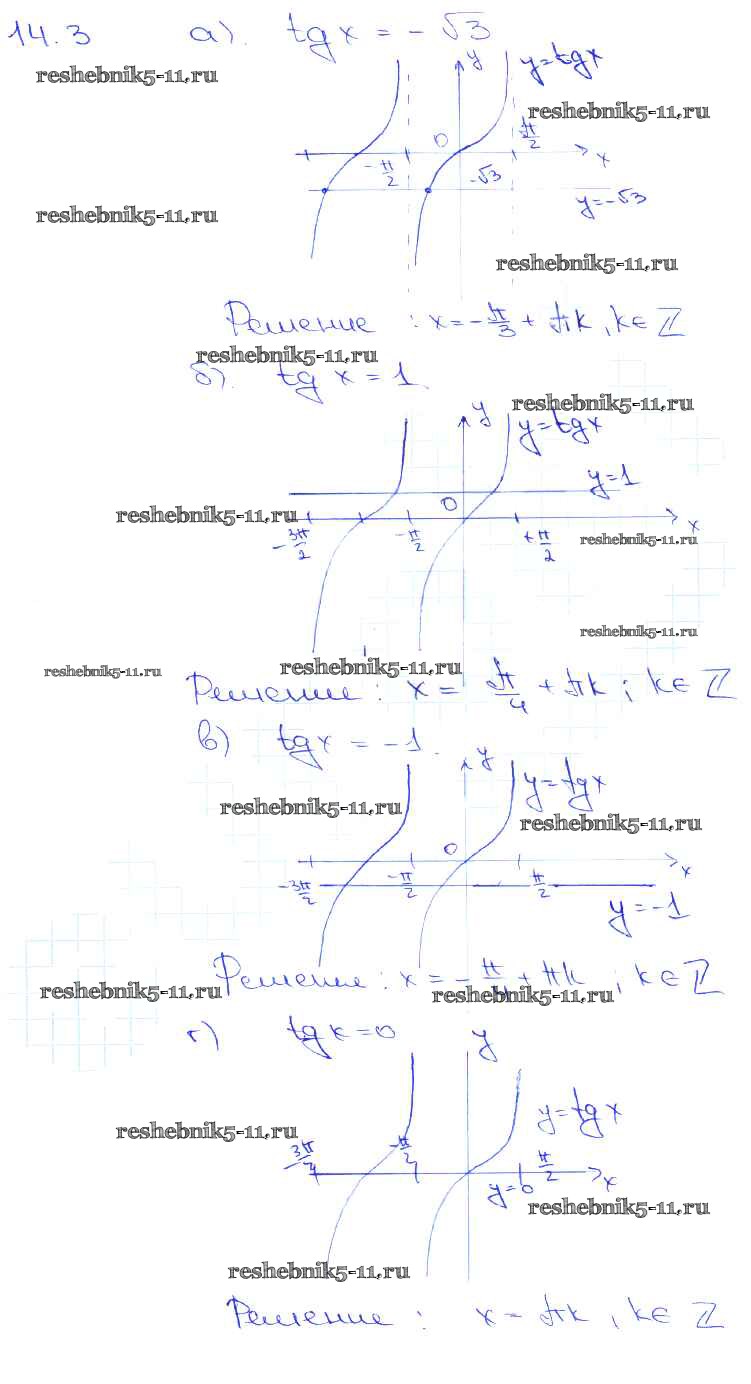 14.3 а). tg x = -√3
reshebnik5-11.ru
y
y=tgx
reshebnik5-11.ru
0
π/2
x
-π/2
-√3
y=-√3
reshebnik5-11.ru
reshebnik5-11.ru
Решение : x = -π/3 + πk, k∈ℤ
reshebnik5-11.ru
б). tg x = 1
reshebnik5-11.ru
y
y=tgx
y=1
0
reshebnik5-11.ru
x
-3π/2
-π/2
+π/2
reshebnik5-11.ru
reshebnik5-11.ru
reshebnik5-11.ru
reshebnik5-11.ru
Решение : x = π/4 + πk ; k∈ℤ
в) tgx = -1
y
y=tgx
reshebnik5-11.ru
reshebnik5-11.ru
0
x
-3π/2
-π/2
π/2
y=-1
Решение : x = -π/4 + πk ; k∈ℤ
reshebnik5-11.ru
reshebnik5-11.ru
г) tgx=0
y
y=tgx
reshebnik5-11.ru
-π/2
π/2
x
y=0
reshebnik5-11.ru
reshebnik5-11.ru
Решение : x = πk, k∈ℤ